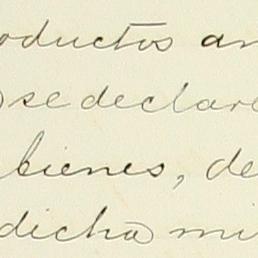 oductos an
se declar
bienes, de
dicha mi